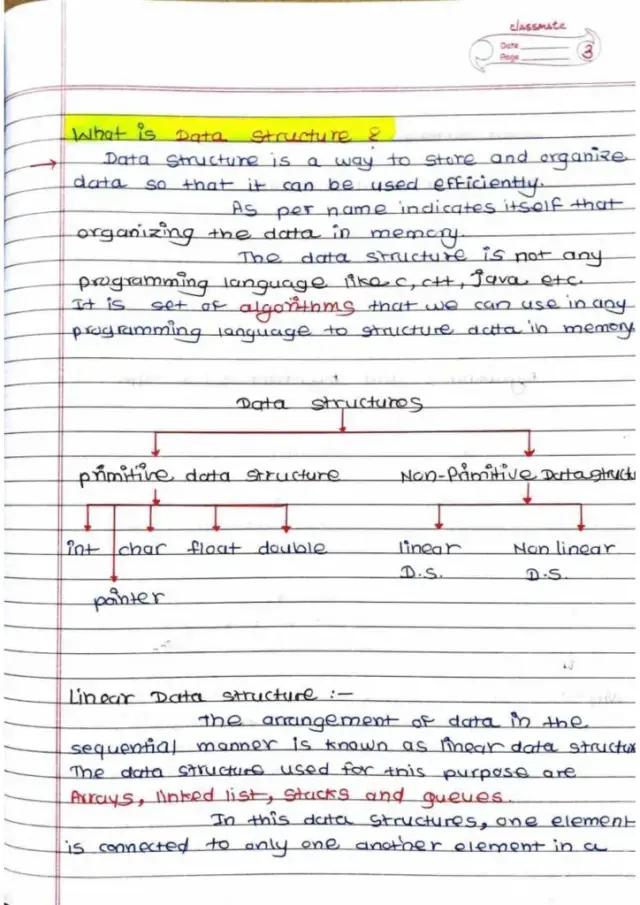 classmate
Date
Page 3
What is Data Structure ?
→ Data structure is a way to store and organize
data so that it can be used efficiently.
As per name indicates itself that
organizing the data in memory.
The data structure is not any
programming language like c, c++, Java etc.
It is set of algorithms that we can use in any
programming language to structure data in memory
Data structures
primitive data structure Non-Primitive Datastruct
int char float double linear Non linear
D.S. D.S.
pointer
Linear Data structure :-
The arrangement of data in the
sequential manner is known as linear data structur
The data structure used for this purpose are
Arrays, linked list, stacks and queues.
In this data structures, one element
is connected to only one another element in a